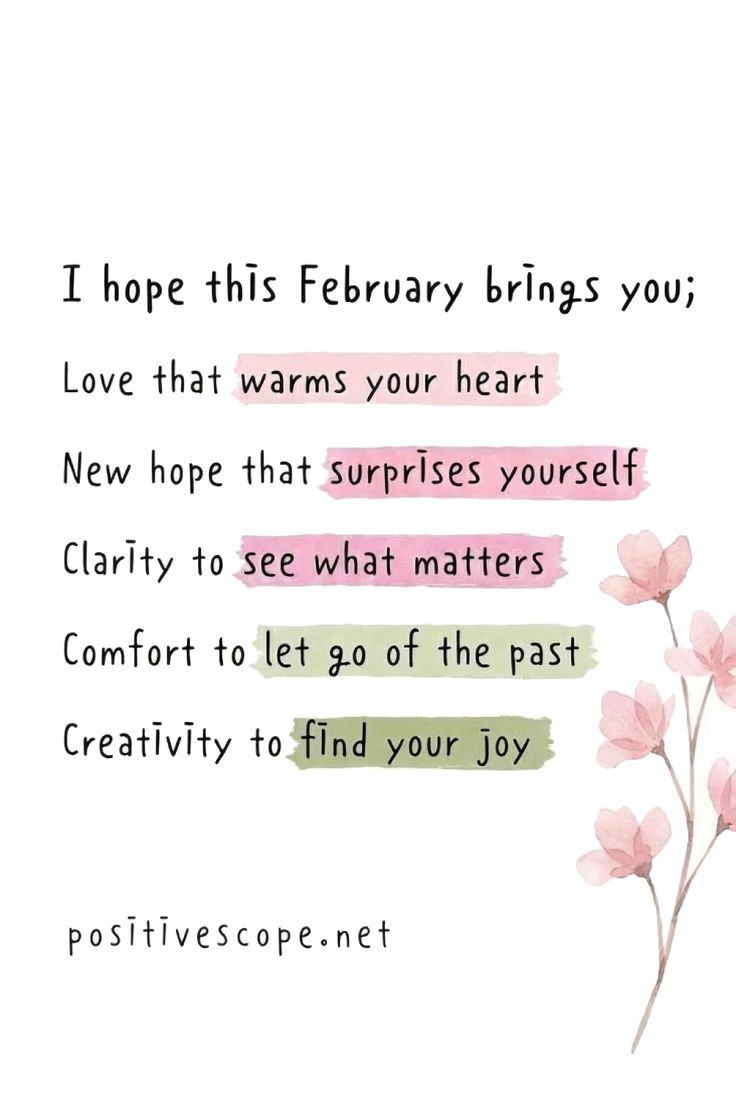 I hope this February brings you;
Love that warms your heart
New hope that surprises yourself
Clarity to see what matters
Comfort to let go of the past
Creativity to find your joy
positivescope.net